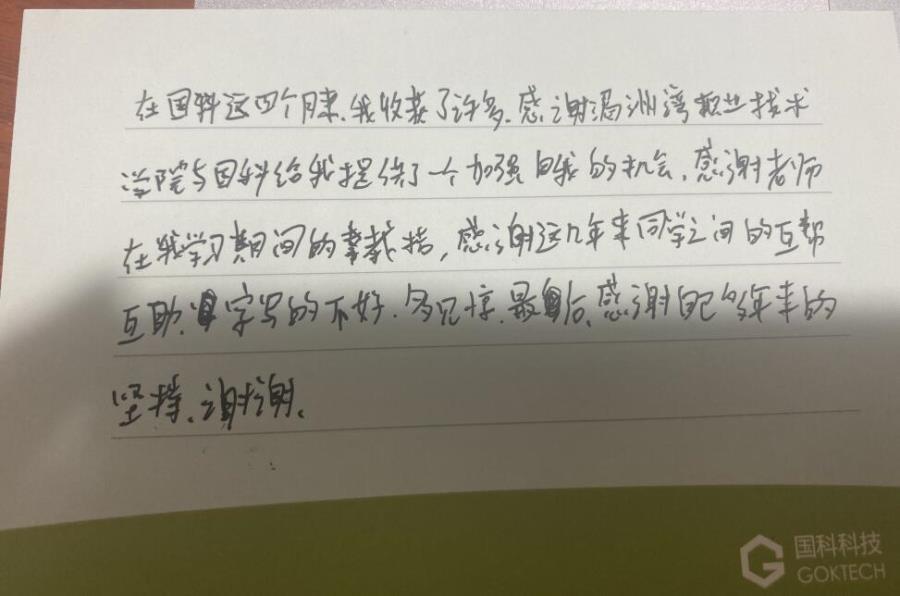 在国科这四个月来、我收获了许多、感谢湄洲湾职业技术
学院与国科给我提供了一个加强自我的机会、感谢老师
在我学习期间的栽培，感谢这几年来同学之间的互帮
互助、字写的不好、多见惊、最后、感谢自己多年来的
坚持、谢谢、
国科科技
GOKTECH